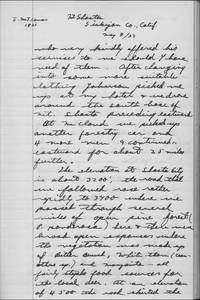 I. McT. Cowan
1933
Mt Shasta
Siskiyou Co., Calif
May 8/33
who very kindly offered his
services to me should I have
need of them. After changing
into some more suitable
clothing Johnson picked me
up at my hotel & we drove
around the south base of
Mt. Shasta proceeding eastward.
At McCloud we picked up
another forestry car and
4 more men & continued
eastward for about 20 miles
further.
The elevation at Shasta City
is about 3500'. The road that
we followed rose rather
rapidly to 4500 where we
passed through several
miles of open pine forest (
P. ponderosa) here & there were
broad open expanses where
the vegetation was made up
of bitter brush, white thorn (cea-
nothus sp) and manzanita - all
fairly staple food sources for
the local deer. At an elevation
of 4500 the road skirted the